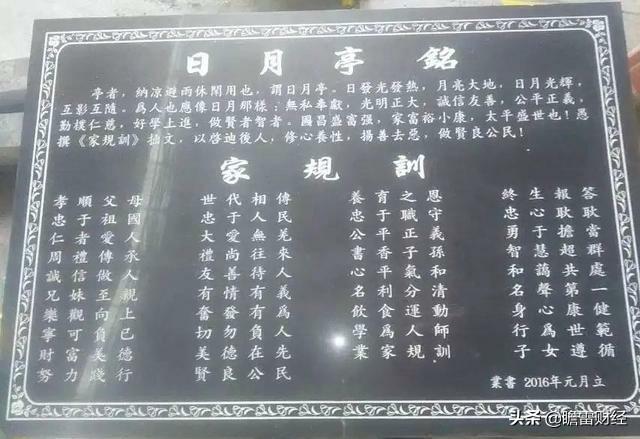 日月亭銘
亭者，納凉避雨休閑用也，謂日月亭。日發光發熱，月亮大地，日月光輝，
互影互隨。爲人也應像日月那様：無私奉獻，光明正大，誠信友善，公平正義，
勤樸仁慈，好學上進，做賢者智者。國昌盛富强，家富裕小康，太平盛世也！愚
撰《家規訓》拙文，以啓迪後人，修心養性，揚善去惡，做賢良公民！
家規訓
孝順父母 世代相傳 養育之恩 終生報答
忠于祖國 忠于人民 忠于職守 忠心耿耿
仁者愛人 大愛無羌 公平正義 勇于擔當
周禮傳承 禮尚往來 書香子孫 智慧超群
誠信做人 友善待人 心平氣和 和藹共處
兄妹至親 有情有義 名利分清 名聲第一
樂觀向上 奮發有爲 飲食運動 身心康健
寧可負己 切勿負人 學爲人師 行爲世範
財富美德 美德在先 業家規訓 子女遵循
努力踐行 賢良公民
業書 2016年元月立
头条 @瞻雷财经